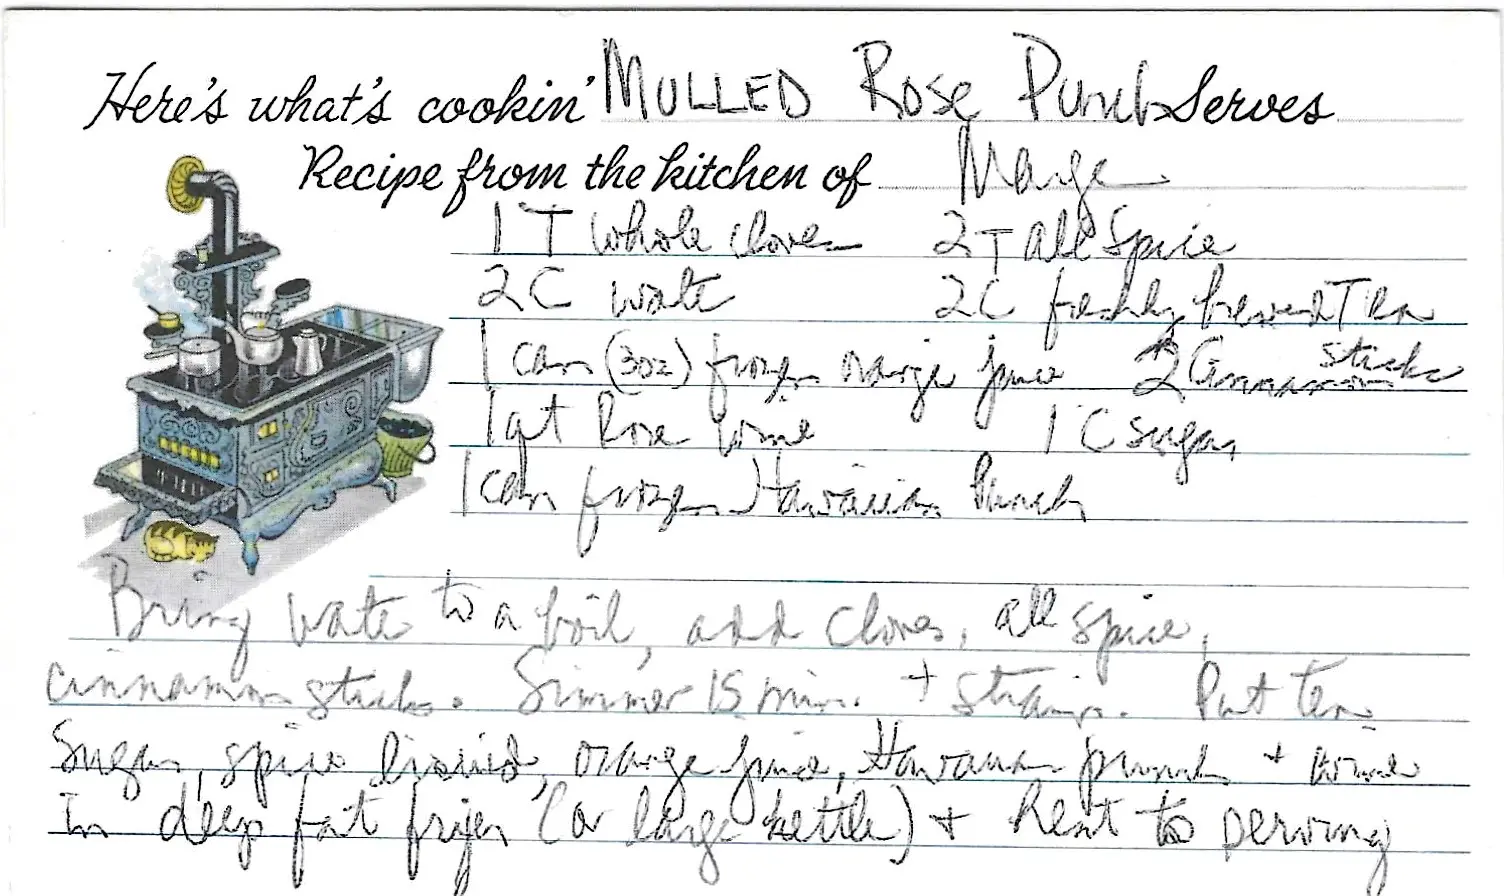 Here's what's cookin' MULLED ROSE Punch Serves
Recipe from the kitchen of Marge
1 T whole cloves 2 T all spice
2 C water 2 C freshly brewed Tea
1 can (3oz) frozen orange juice 2 Cinnamon sticks
1 qt Rose wine 1 C sugar
1 can frozen Hawaiian Punch
Bring water to a boil, add cloves, all spice,
cinnamon sticks. Simmer 15 min. + strain. Put tea
sugar, spice liquid, orange juice, Hawaiian punch + wine
In deep fat fryer (or large kettle) + heat to serving